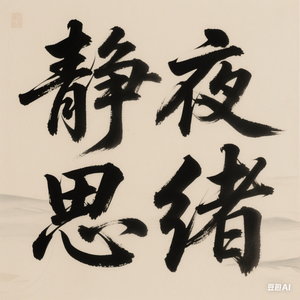 静夜
思绪
豆包AI